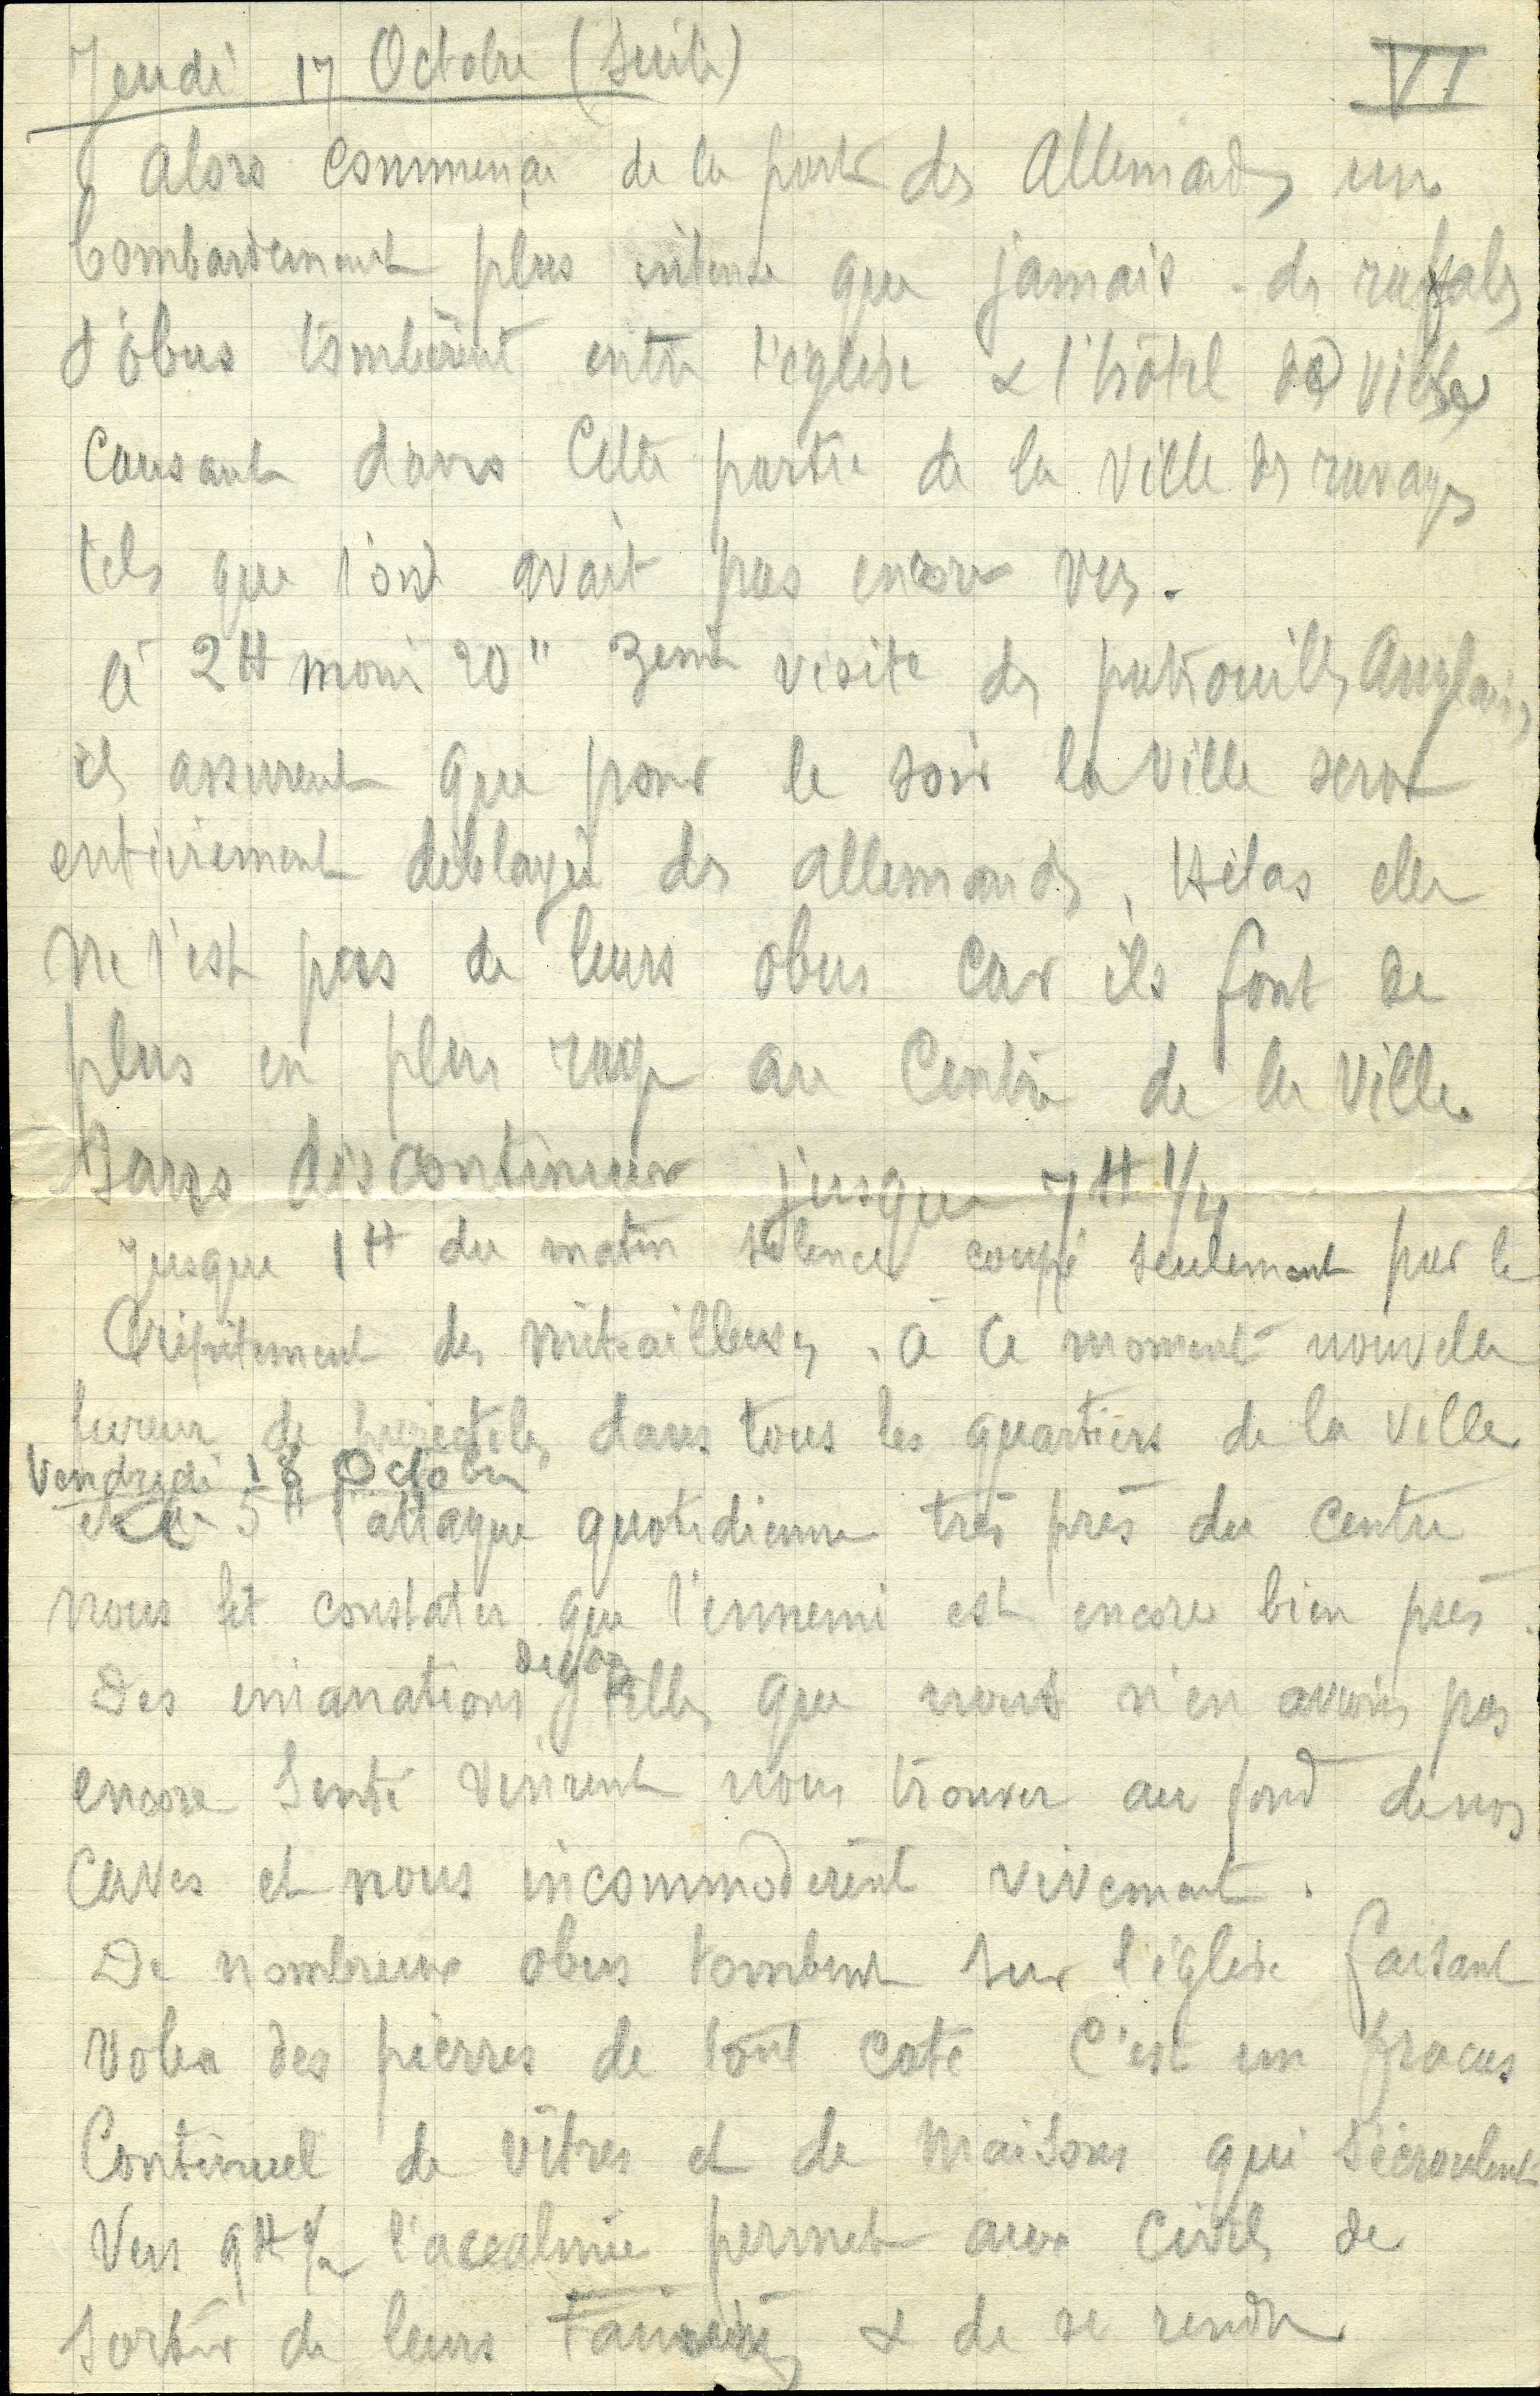 Jeudi 17 Octobre (suite)
VI
Alors commença de la part des Allemands un
bombardement plus intense que jamais. des rafales
d'obus tombèrent entre l'église & l'hôtel de Ville
causant dans cette partie de la Ville des ravages
tels que l'on avait pas encore vus.
à 2H moins 20" 3eme visite des patrouilles Anglaises
ils assurent que pour le soir la Ville sera
entièrement déblayée des allemands, Hélas elle
ne l'est pas de leurs obus car ils font de
plus en plus rage au Centre de la Ville
Sans discontinuer jusque 7H 1/4
Jusque 1H du matin silence coupé seulement par le
Crépitement des mitrailleuses. à ce moment nouvelle
fureur de projectiles dans tous les quartiers de la Ville
Vendredi 18 Octobre
et à 5H l'attaque quotidienne très près du centre
nous fit constater que l'ennemi est encore bien près.
Des émanations de gaz telles que nous n'en avions pas
encore senti vinrent nous trouver au fond de nos
Caves et nous incommodèrent vivement.
De nombreux obus tombent sur l'église faisant
Voler des pierres de tout coté C'est un fracas
Continuel de vitres et de maisons qui s'écroulent
Vers 9H 1/2 l'accalmie permet aux civils de
Sortir de leurs & de se rendre